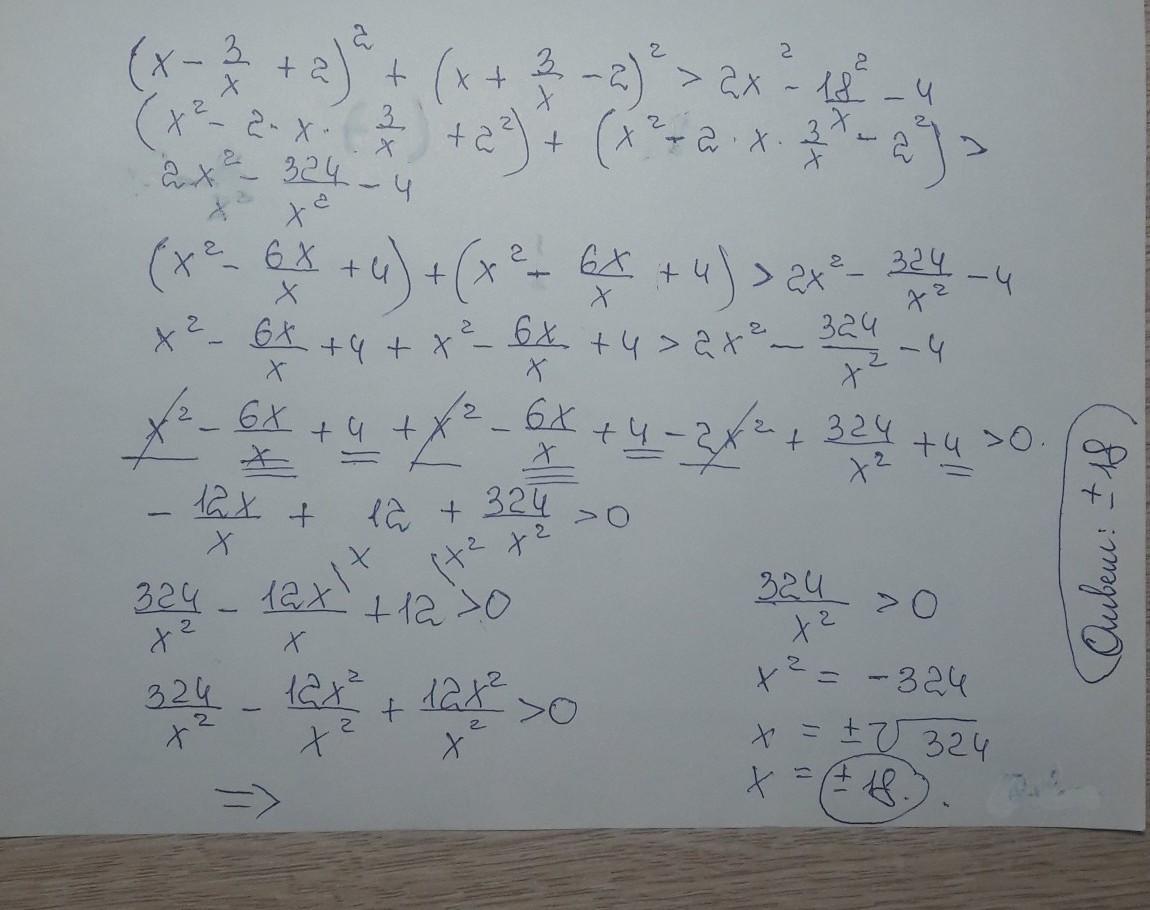 (x - 3/x + 2)² + (x + 3/x - 2)² > 2x² - 18²/x - 4
(x² - 2 · x · 3/x + 2²) + (x² - 2 · x · 3/x - 2²) >
2x² - 324/x² - 4
(x² - 6x/x + 4) + (x² - 6x/x + 4) > 2x² - 324/x² - 4
x² - 6x/x + 4 + x² - 6x/x + 4 > 2x² - 324/x² - 4
x² - 6x/x + 4 + x² - 6x/x + 4 - 2x² + 324/x² + 4 > 0.
- 12x/x + 12 + 324/x² > 0
324/x² - 12x\x/x + 12\x² > 0
324/x² - 12x²/x² + 12x²/x² > 0
=>
324/x² > 0
x² = -324
x = ±√324
x = ±18.
Ответ: ±18